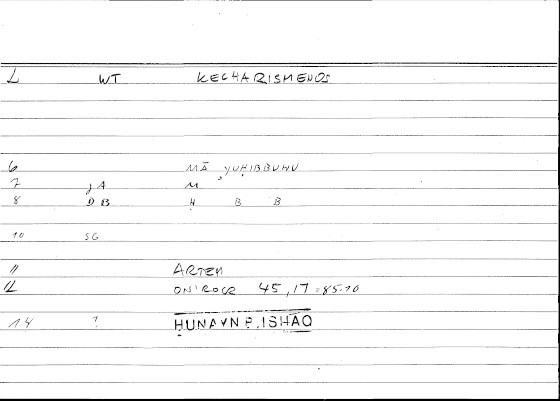 L WT KECHARISMENOS
6 MĀ YUḤIBBUHU
7 ʾA M
8 DB Ḥ B B
10 SG
11 ARTEM
12 ONIROCR 45,17 = 85.10
14 ? ḤUNAYN B. ISḤĀQ